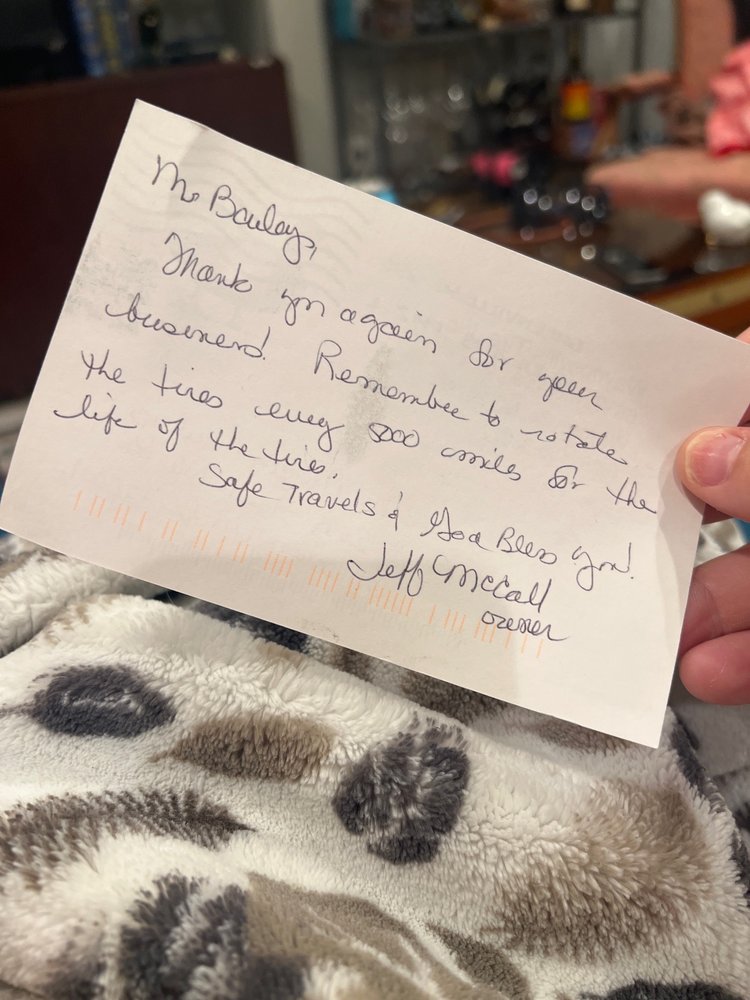 Mr Bailey,
Thank you again for your
business! Remember to rotate
the tires every 5000 miles for the
life of the tires.
Safe Travels & God Bless you!
Jeff McCall
owner